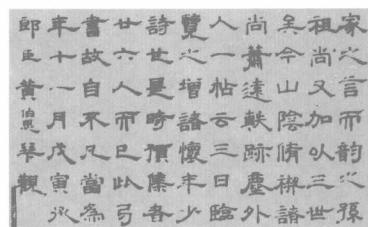 家之言而韵之孫
祖尚又加以三世
矣今山陰脩禊諸
尚蕭遠軼跡塵外
人一帖云三日臨
覽之增諸懷年少
詩世是時預集者
廿六人而已此弓
書故自不凡當為
年十一月戊寅承
郎臣黃伯思琴觀